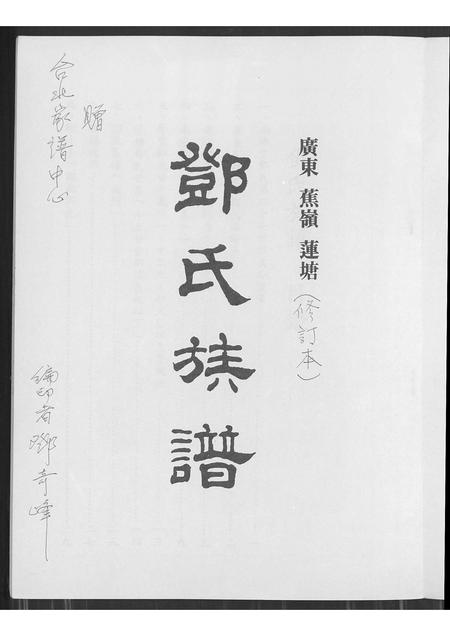 廣東 蕉嶺 蓮塘（修訂本）
鄧氏族譜
贈
台北家譜中心
編印者鄧奇峰